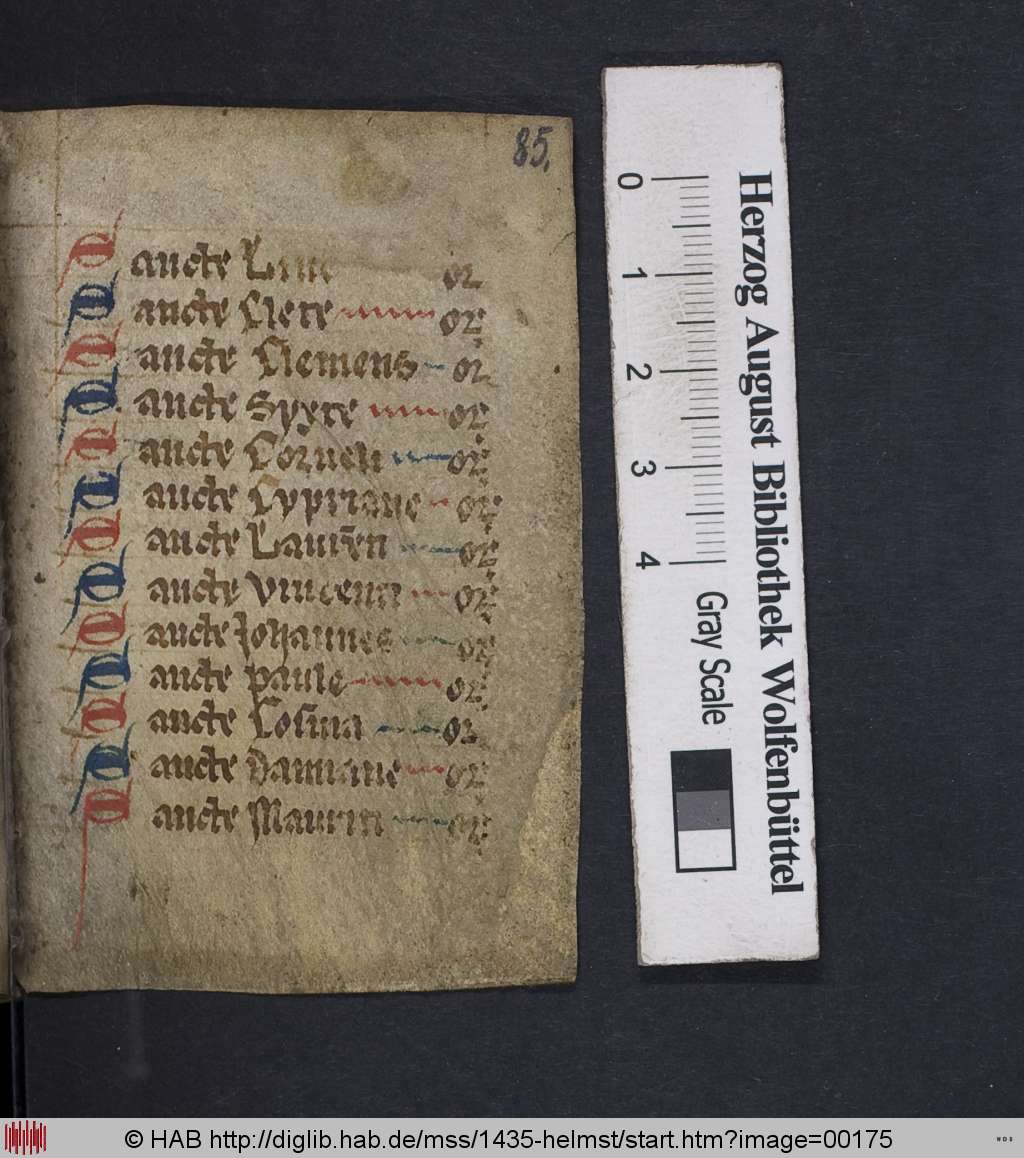 85.
Sancte Line or
Sancte Clete or
Sancte Clemens or
Sancte Syxte or
Sancte Corneli or
Sancte Cypriane or
Sancte Laurēti or
Sancte Vincenti or
Sancte Johannes or
Sancte paule or
Sancte Cosma or
Sancte Damiane or
Sancte Mauriti or
Herzog August Bibliothek Wolfenbüttel
0 1 2 3 4 Gray Scale
© HAB http://diglib.hab.de/mss/1435-helmst/start.htm?image=00175